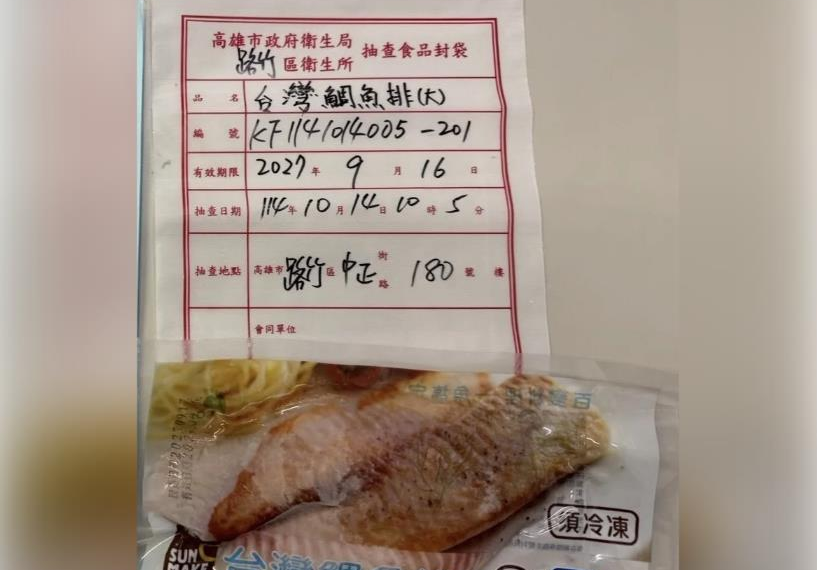 高雄市政府衛生局
路竹區衛生所
抽查食品封袋
品名 台灣鯛魚排(大)
編號 KF1141014005-201
有效期限 2027年9月16日
抽查日期 114年10月14日10時5分
抽查地點 高雄市路竹區中正街路180號樓
會同單位
須冷凍
SUN
MAKE
台灣鯛